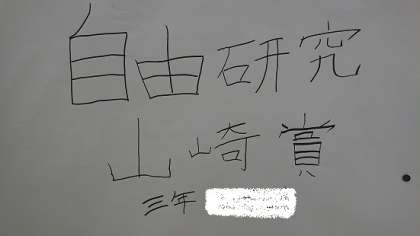 自由研究
山崎賞
三年